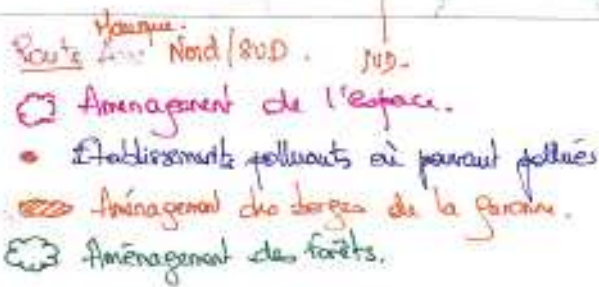 Manque.
Route Nord/SUD. SUD.
Aménagement de l'espace.
Etablissements polluants où pouvant polluées
Aménagement des berges de la Garonne.
Aménagement des forêts.